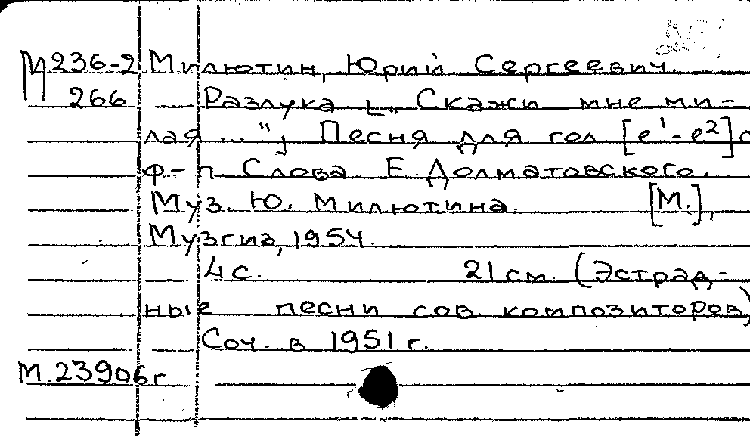 М 236-2 Милютин, Юрий Сергеевич
266 Разлука ["Скажи мне ми-
лая ..."]; Песня для гол [e¹-e²] с
ф-п Слова Е. Долматовского.
Муз. Ю. Милютина. [М.],
Музгиз, 1954.
4 с. 21 см. (Эстрад-
ные песни сов. композиторов)
Соч. в 1951 г.
М.23906г